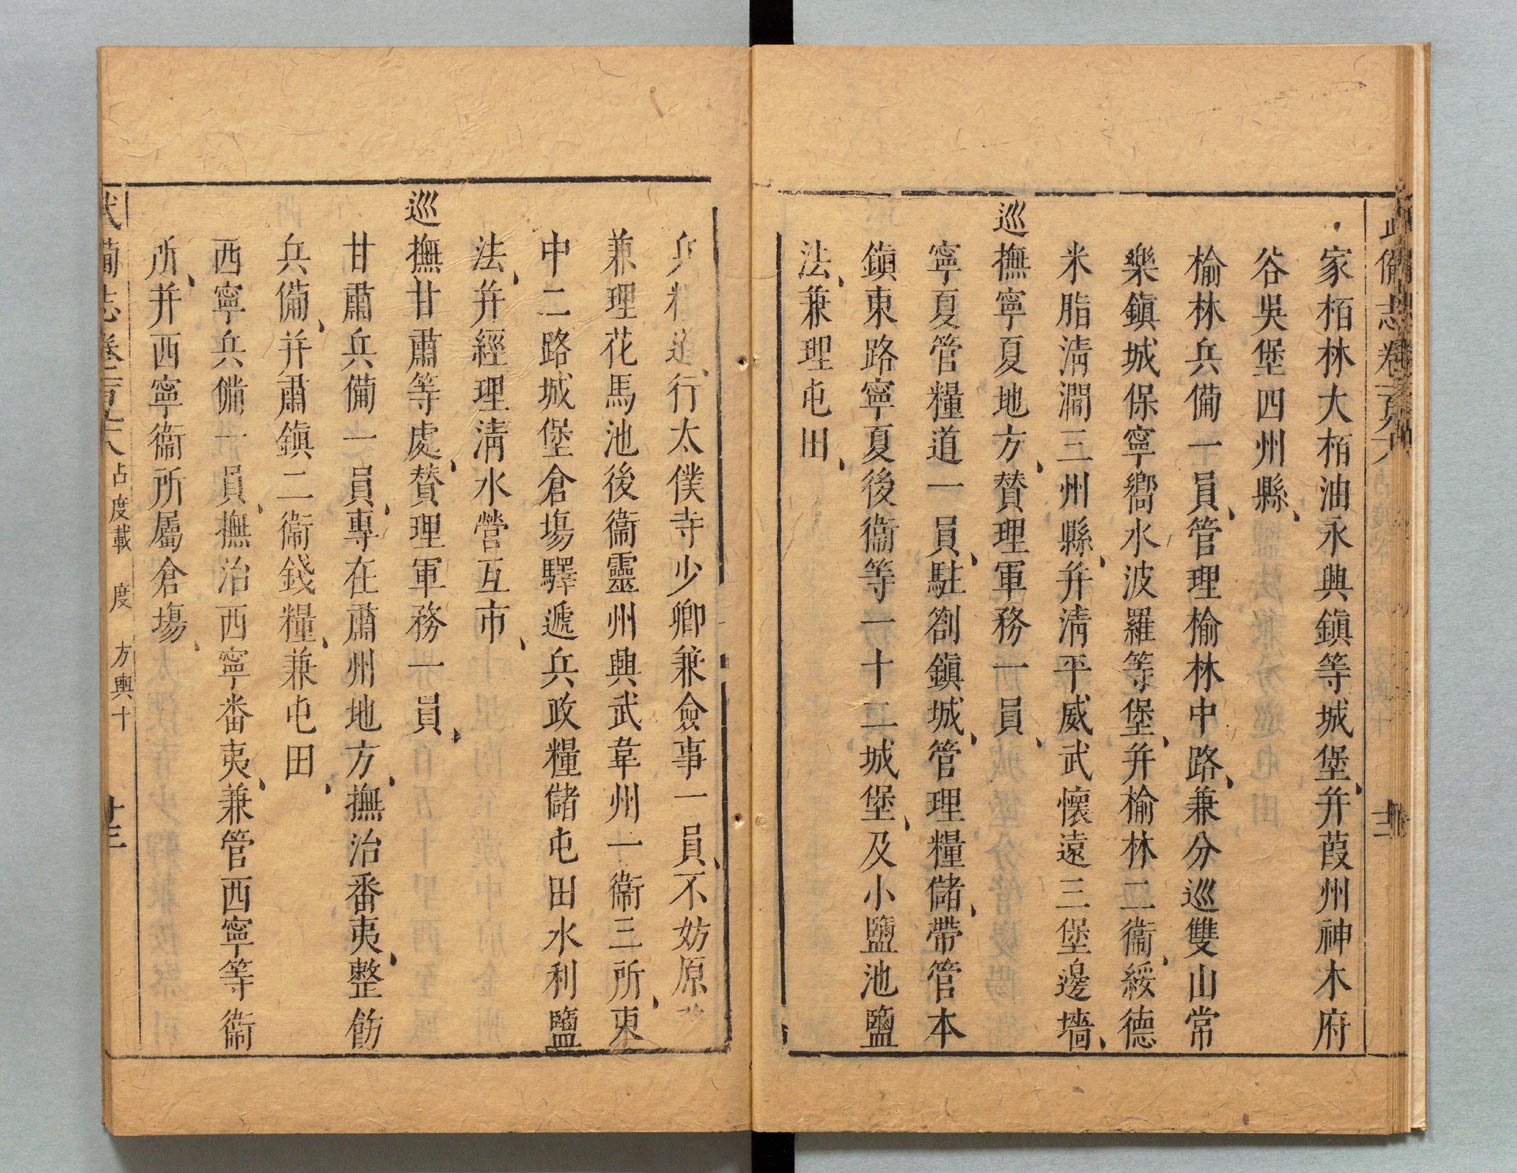 家栢林大栢油永興鎮等城堡并葭州神木府
谷吳堡四州縣
榆林兵備一員管理榆林中路兼分巡雙山常
樂鎮城保寧嚮水波羅等堡并榆林二衞綏德
米脂淸澗三州縣并淸平威武懷遠三堡邊墻
巡撫寧夏地方贊理軍務一員
寧夏管糧道一員駐劄鎮城管理糧儲帶管本
鎮東路寧夏後衞等一十二城堡及小鹽池鹽
法兼理屯田
兵糧道行太僕寺少卿兼僉事一員不妨原
兼理花馬池後衞靈州興武韋州十一衞三所東
中二路城堡倉塲驛遞兵政糧儲屯田水利鹽
法并經理淸水營互市
巡撫甘肅等處贊理軍務一員
甘肅兵備一員專在肅州地方撫治番夷整飭
兵備并肅鎮二衞錢糧兼屯田
西寧兵備一員撫治西寧番夷兼管西寧等衞
所并西寧衞所屬倉塲
武備志卷二百六 占度載 度 方輿十 廿三